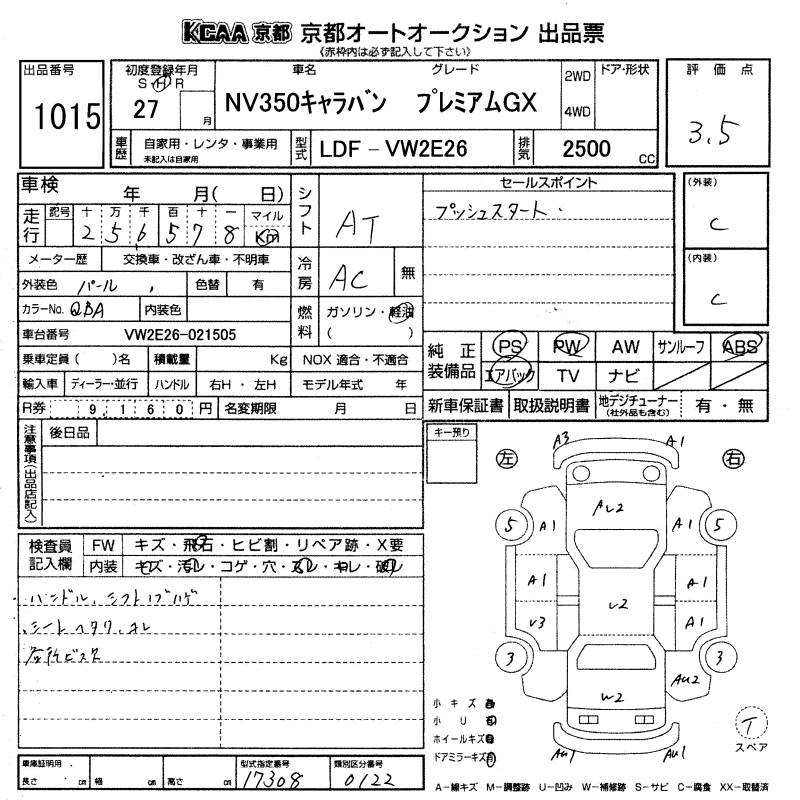 KCAA 京都 京都オートオークション 出品票
(赤枠内は必ず記入して下さい)
出品番号 1015
初度登録年月 S・H・R 27 月
車名 グレード
NV350キャラバン プレミアムGX
2WD 4WD ドア・形状
評価点 3.5
車歴 自家用・レンタ・事業用 未記入は自家用
型式 LDF-VW2E26
排気 2500 CC
車検 年 月( 日)
シフト AT
セールスポイント
プッシュスタート.
(外装) C
(内装) C
走行 記号 十 万 千 百 十 一 マイル
256578 Km
メーター歴 交換車・改ざん車・不明車
冷房 AC 無
外装色 パール , 色替 有
カラーNo. QBA 内装色
燃料 ガソリン・軽油 ( )
車台番号 VW2E26-021505
乗車定員( )名 積載量 Kg NOX 適合・不適合
輸入車 ディーラー・並行 ハンドル 右H・左H モデル年式 年
R券 9,160円 名変期限 月 日
純正装備品 PS PW AW サンルーフ ABS
エアバック TV ナビ
新車保証書 取扱説明書 地デジチューナー (社外品も含む) 有・無
注意事項(出品店記入)
後日品
キー預り
左 右
A3 A1
AU2
5 A1 A1 5
A1 A1
U2
U3 A1
3 3
AU2
W2
AU1 AU1
検査員記入欄
FW キズ・飛石・ヒビ割・リペア跡・X要
内装 キズ・汚レ・コゲ・穴・スレ・キレ・破レ
ハンドル、シフトノブハゲ
シートヘタリ、コレ
各所ビス穴
小キズ 有
小U 有
ホイールキズ 有
ドアミラーキズ 有
T スペア
車庫証明用
長さ cm 幅 cm 高さ cm
型式指定番号 17308
類別区分番号 0122
A-線キズ M-調整跡 U-凹み W-補修跡 S-サビ C-腐食 XX-取替済